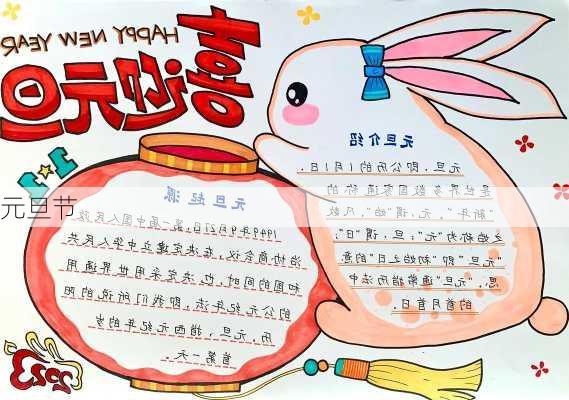 HAPPY NEW YEAR
喜迎元旦
1·1
元旦节
元旦介绍
元旦，即公历的1月1日，
是世界多数国家通称的
“新年”。元，谓“始”，凡数
之始称为“元”；旦，谓“日”；
“元旦”即“初始之日”的意
思。“元旦”通常指历法中
的首月首日
元旦起源
1949年9月27日，第一届中国人民政
治协商会议，在决定建立中华人民共
和国的同时，也决定采用世界通用
的公元纪年法，即我们所说的阳
历。元旦，指西元纪年的岁
首第一天。
2023